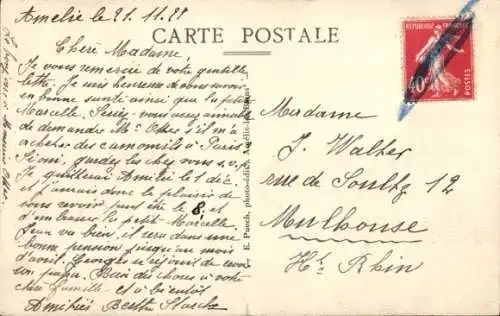 Amélie le 21. 11. 29
CARTE POSTALE
Chère Madame,
Je vous remercie de votre gentille
lettre. Je suis heureuse de vous savoir
en bonne santé ainsi que la petite
Marcelle. Seriez-vous assez aimable
de demander Mr. si il m'a
acheter des camomile à Paris
Si oui, gardez les chez vous s.v.
Je quitterai Amélie le 1 déc.
et j'aurais donc le plaisir de
vous revoir peut être le 8. et
d'embrasser la petite Marcelle.
Jean va bien, il sera dans une
bonne pension jusqu'au mois
d'avril. Georges se réjouit de revoir
un papa. Bien des choses à votre
chère famille et à bientôt
Amitiés Berthe
REPUBLIQUE FRANÇAISE
POSTES
Madame
J. Walter
rue de Soultz 12
Mulhouse
Ht. Rhin
E. Puech, photo-édit., Amélie-les-Bains